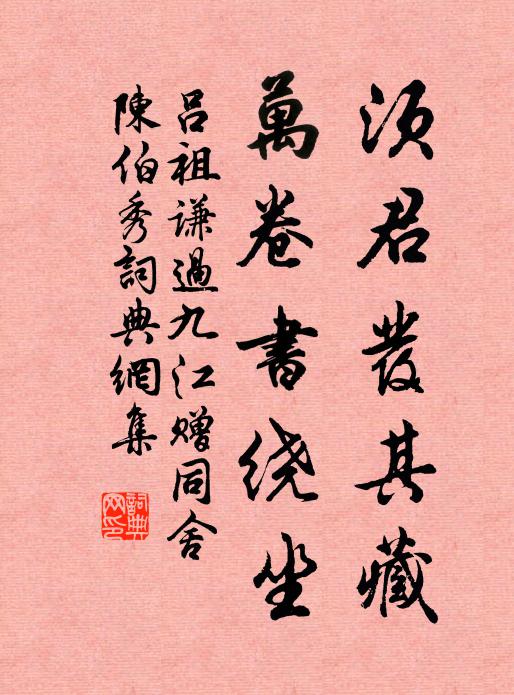 須君發其藏
萬卷書绕坐
吕祖谦過九江赠同舍
陳伯秀詞典網集
詞典
网印